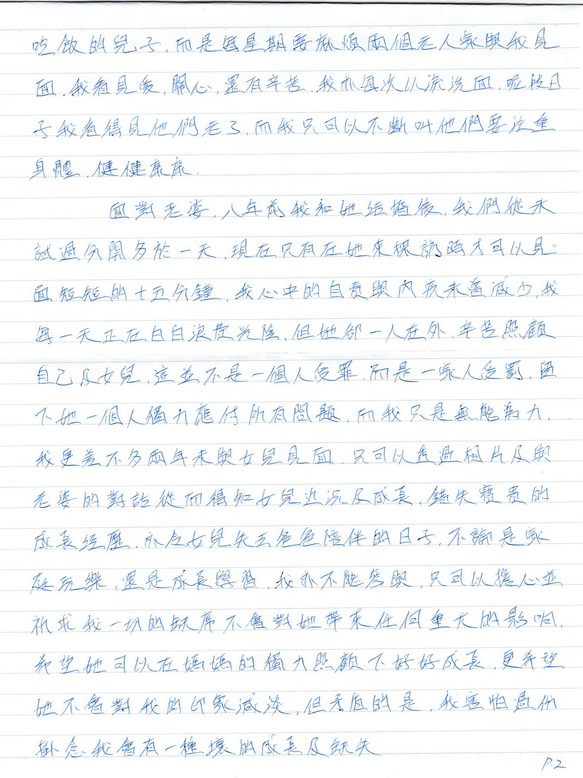 吃飯的兒子,而是每星期要麻煩兩個老人家與我見
面,我看見愛,關心,還有辛苦,我亦每次以流洗面,呢段日
子我看得見他們老了,而我只可以不斷叫他們要注重
身體,健健康康.
面對老婆,八年前我和她結婚後,我們從未
試過分開多於一天,現在只有在她來探訪時才可以見
面短短的十五分鐘,我心中的自責與內疚未曾減少,我
每一天正在白白浪費光陰,但她卻一人在外,辛苦照顧
自己及女兒,這並不是一個人受罪,而是一家人受罰,留
下她一個人獨力應付所有問題,而我只是無能為力,
我更差不多兩年未與女兒見面,只可以透過相片及與
老婆的對話從而得知女兒近況及成長,錯失寶貴的
成長經歷,亦令女兒失去爸爸陪伴的日子,不論是家
庭玩樂,還是成長學習,我亦不能參與,只可以擔心並
祈求我一切的缺席不會對她帶來任何重大的影响,
希望她可以在媽媽的獨力照顧下好好成長,更希望
她不會對我的印象減淡,但矛盾的是,我害怕過份
掛念我會有一種壞的成長及缺失
P.2